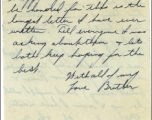 longest letter I have ever
written. Tell everyone I was
asking about them & lets
both keep hoping for the
best.
With all my
Love Brother